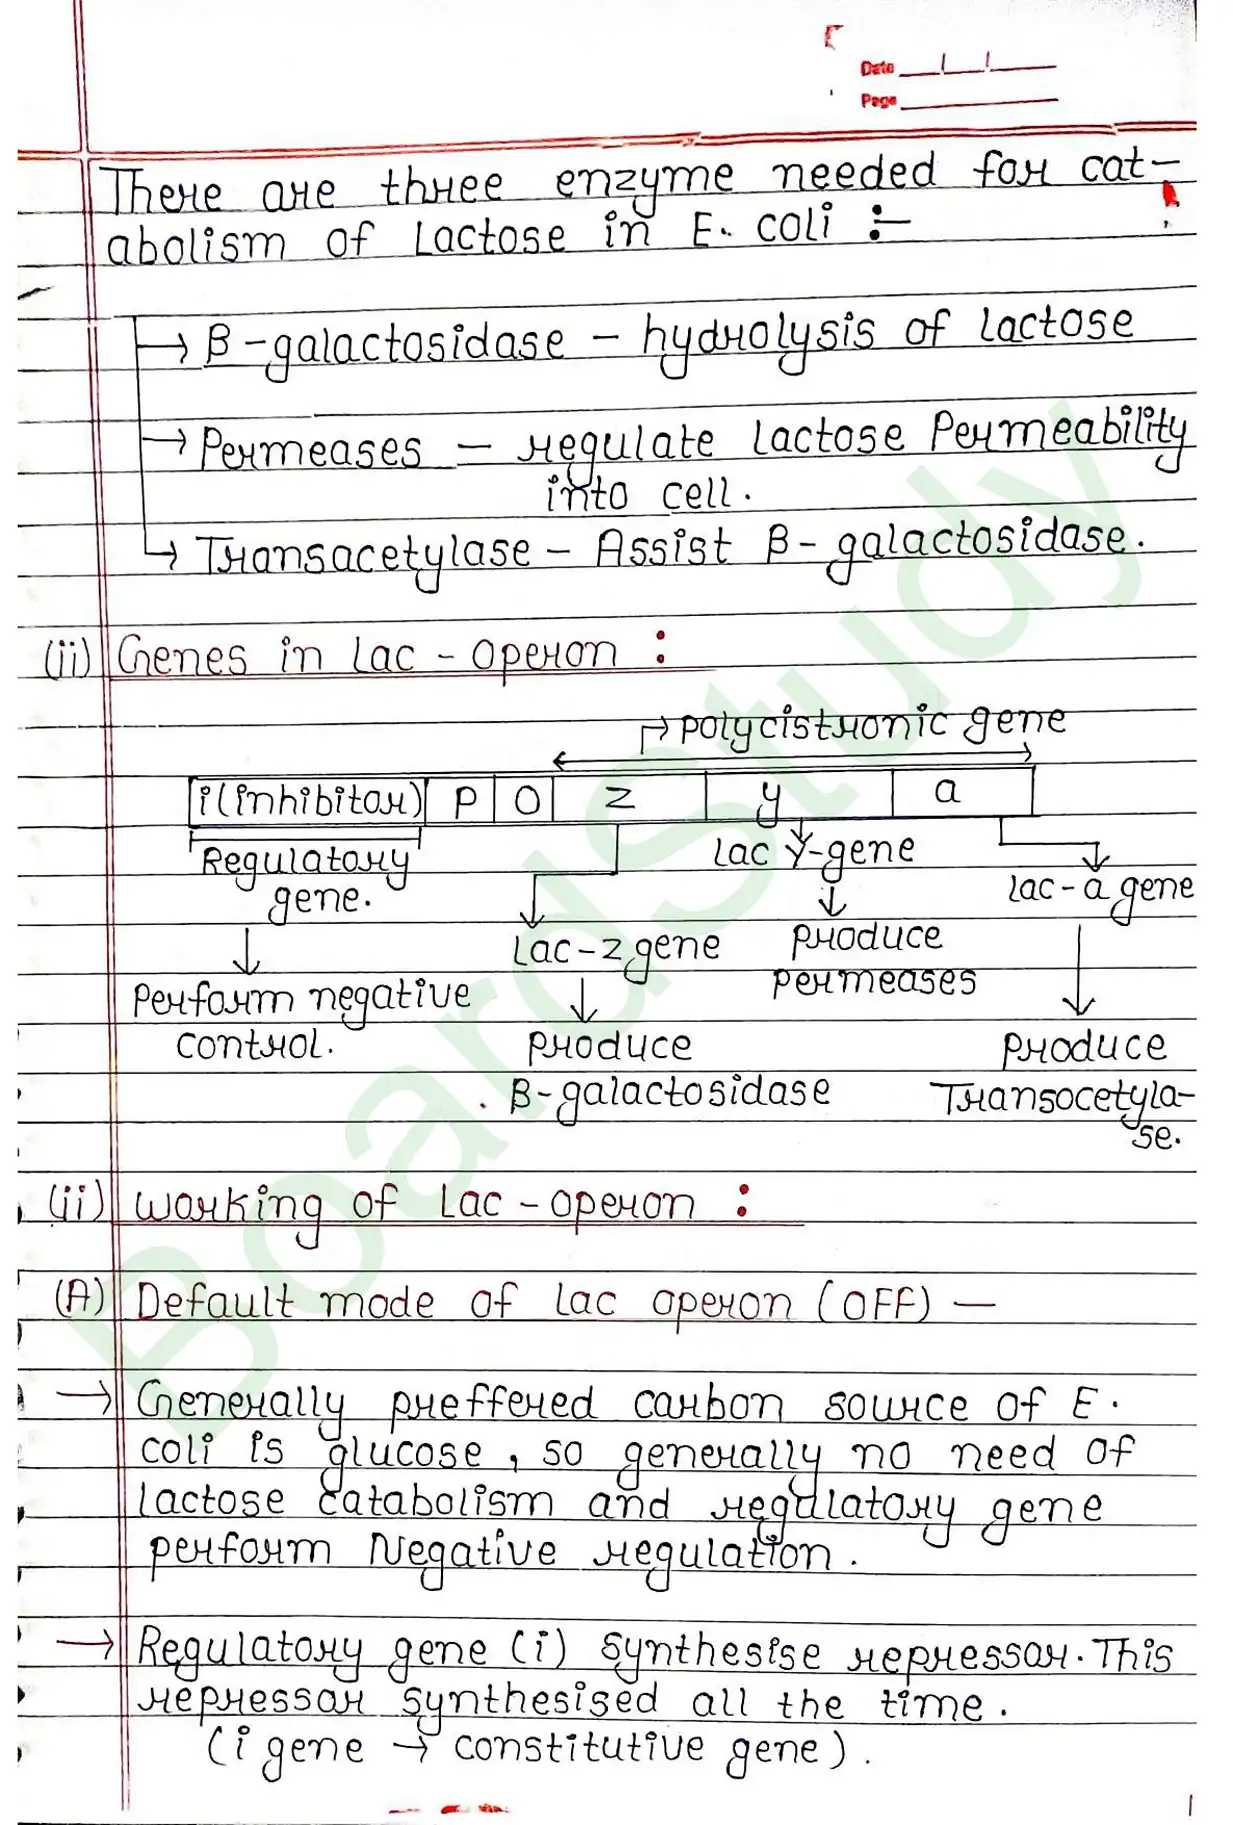 Date
Page
There are three enzyme needed for cat-
abolism of Lactose in E. coli :-
→ β-galactosidase - hydrolysis of lactose
→ Permeases - regulate lactose Permeability
into cell.
→ Transacetylase - Assist β-galactosidase.
(ii) Genes in Lac-operon :
→ polycistronic gene
i(inhibitor) P O z y a
Regulatory
gene.
lac y-gene
lac-a gene
Lac-z gene
produce
permeases
Perform negative
control.
produce
β-galactosidase
produce
Transocetyla-
se.
(ii) working of Lac-operon :
(A) Default mode of lac operon (OFF) -
→ Generally preffered carbon source of E.
coli is glucose, so generally no need of
lactose catabolism and regulatory gene
perform Negative regulation.
→ Regulatory gene (i) synthesise repressor. This
repressor synthesised all the time.
(i gene → constitutive gene).
BoardStudy